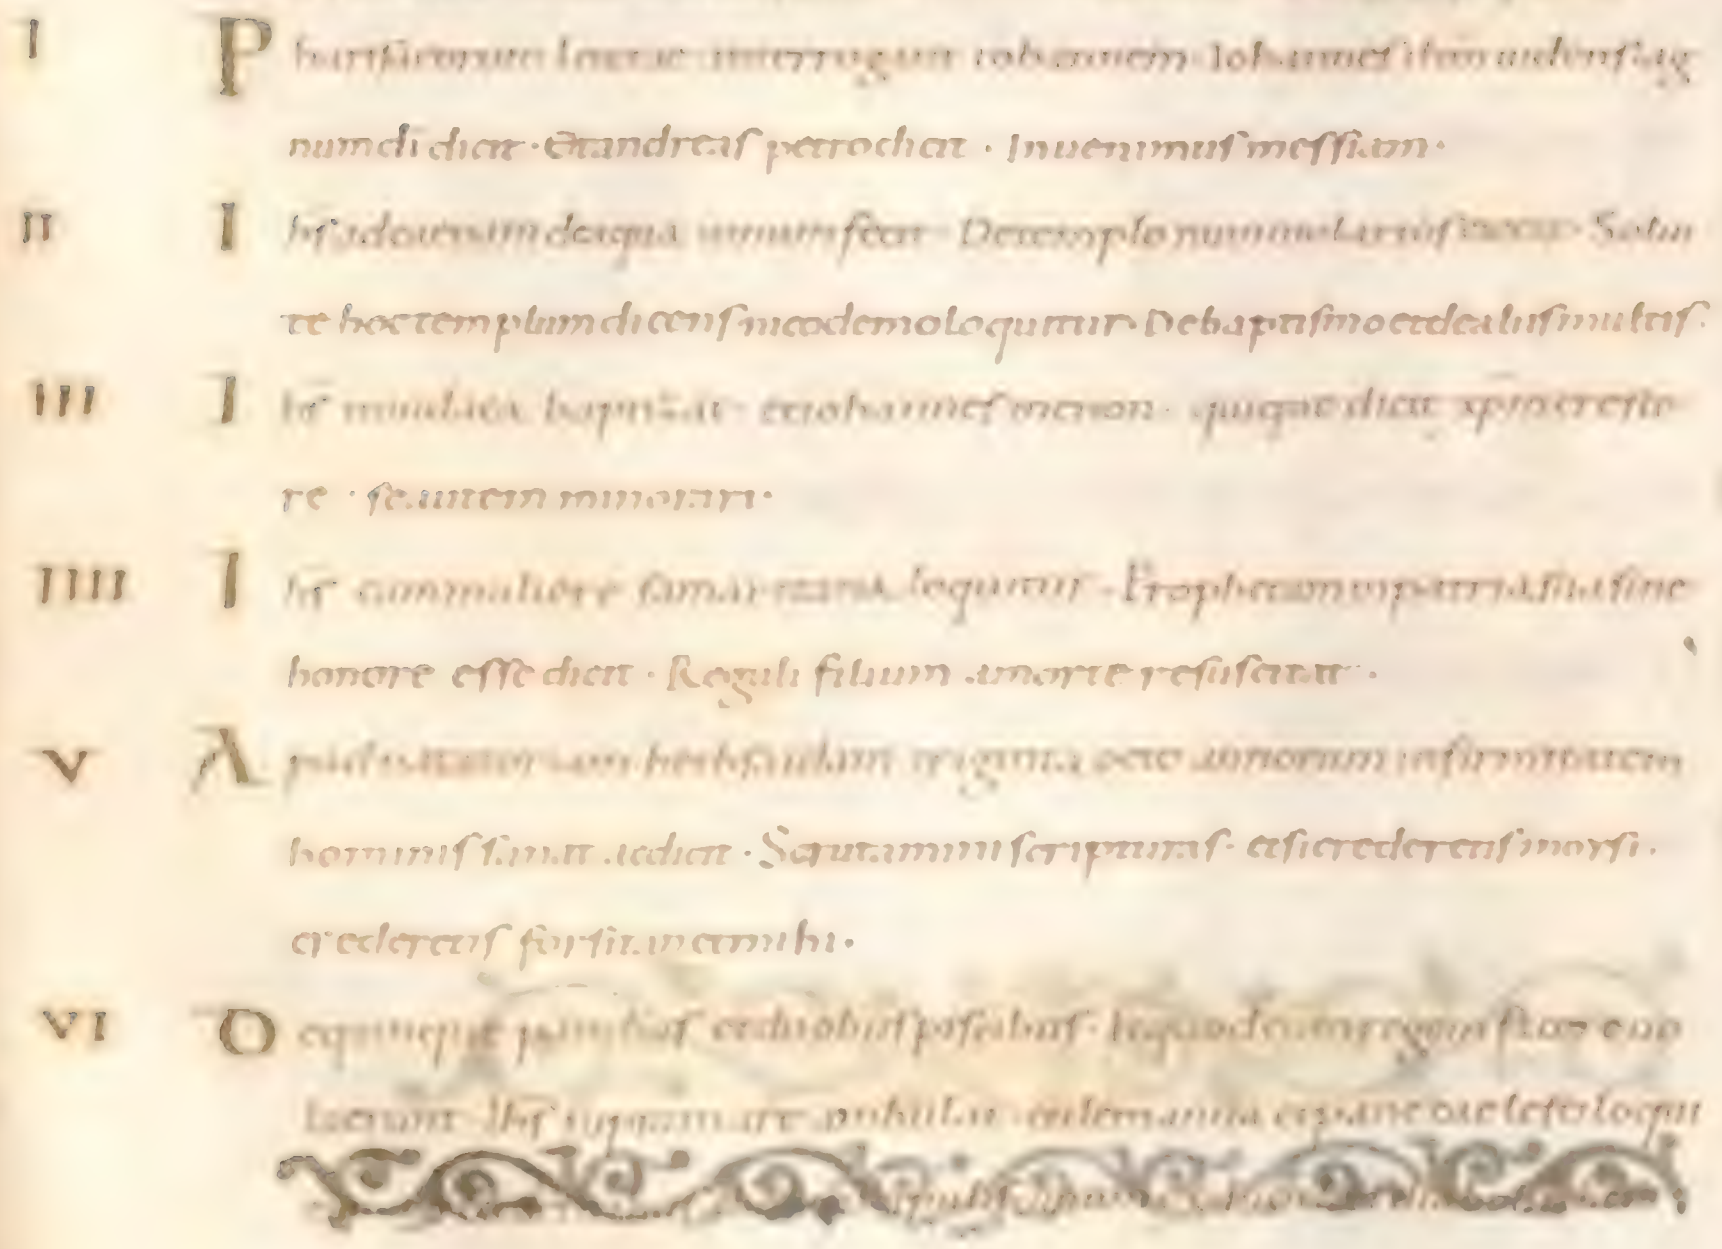 I Pharisaeorum leuitae interrogant iohannem · Iohannes ihm uidens ag
num di dicit · Et andreas petro dicit · Inuenimus messiam ·
II Ihs ad uinum fecit · De templo nummularios · Solui
te hoc templum dicens nicodemo loquitur · De baptismo et de aliis multis ·
III Ihs in iudaea baptizat · et iohannes in enon · quique dicit xpm cresce
re · se autem minorari ·
IIII Ihs cum muliere samaritana loquitur · Prophetam in patria sua sine
honore esse dicit · Reguli filium a morte resuscitat ·
V Apud natatoriam bethsaidam triginta octo annorum infirmitatem
hominis sanat · Scrutamini scripturas · et si crederetis moysi ·
crederetis forsitan et mihi ·
VI De quinque panibus et duobus piscibus · uo
Ihs supra mare ambulat · et de manna et pane caelesti loqui